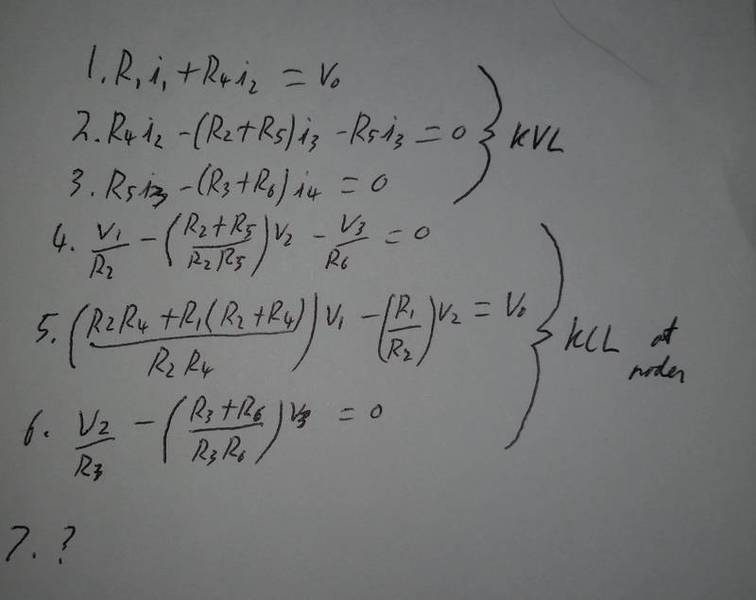 1. R₁i₁ + R₄i₂ = V₀
2. R₄i₂ - (R₂+R₅)i₃ - R₅i₃ = 0
3. R₅i₃ - (R₃+R₆)i₄ = 0
KVL
4. V₁/R₂ - ((R₂+R₅)/(R₂R₅))V₂ - V₃/R₆ = 0
5. ((R₂R₄ + R₁(R₂+R₄))/(R₂R₄))V₁ - (R₁/R₂)V₂ = V₀
KCL at nodes
6. V₂/R₃ - ((R₃+R₆)/(R₃R₆))V₃ = 0
7. ?